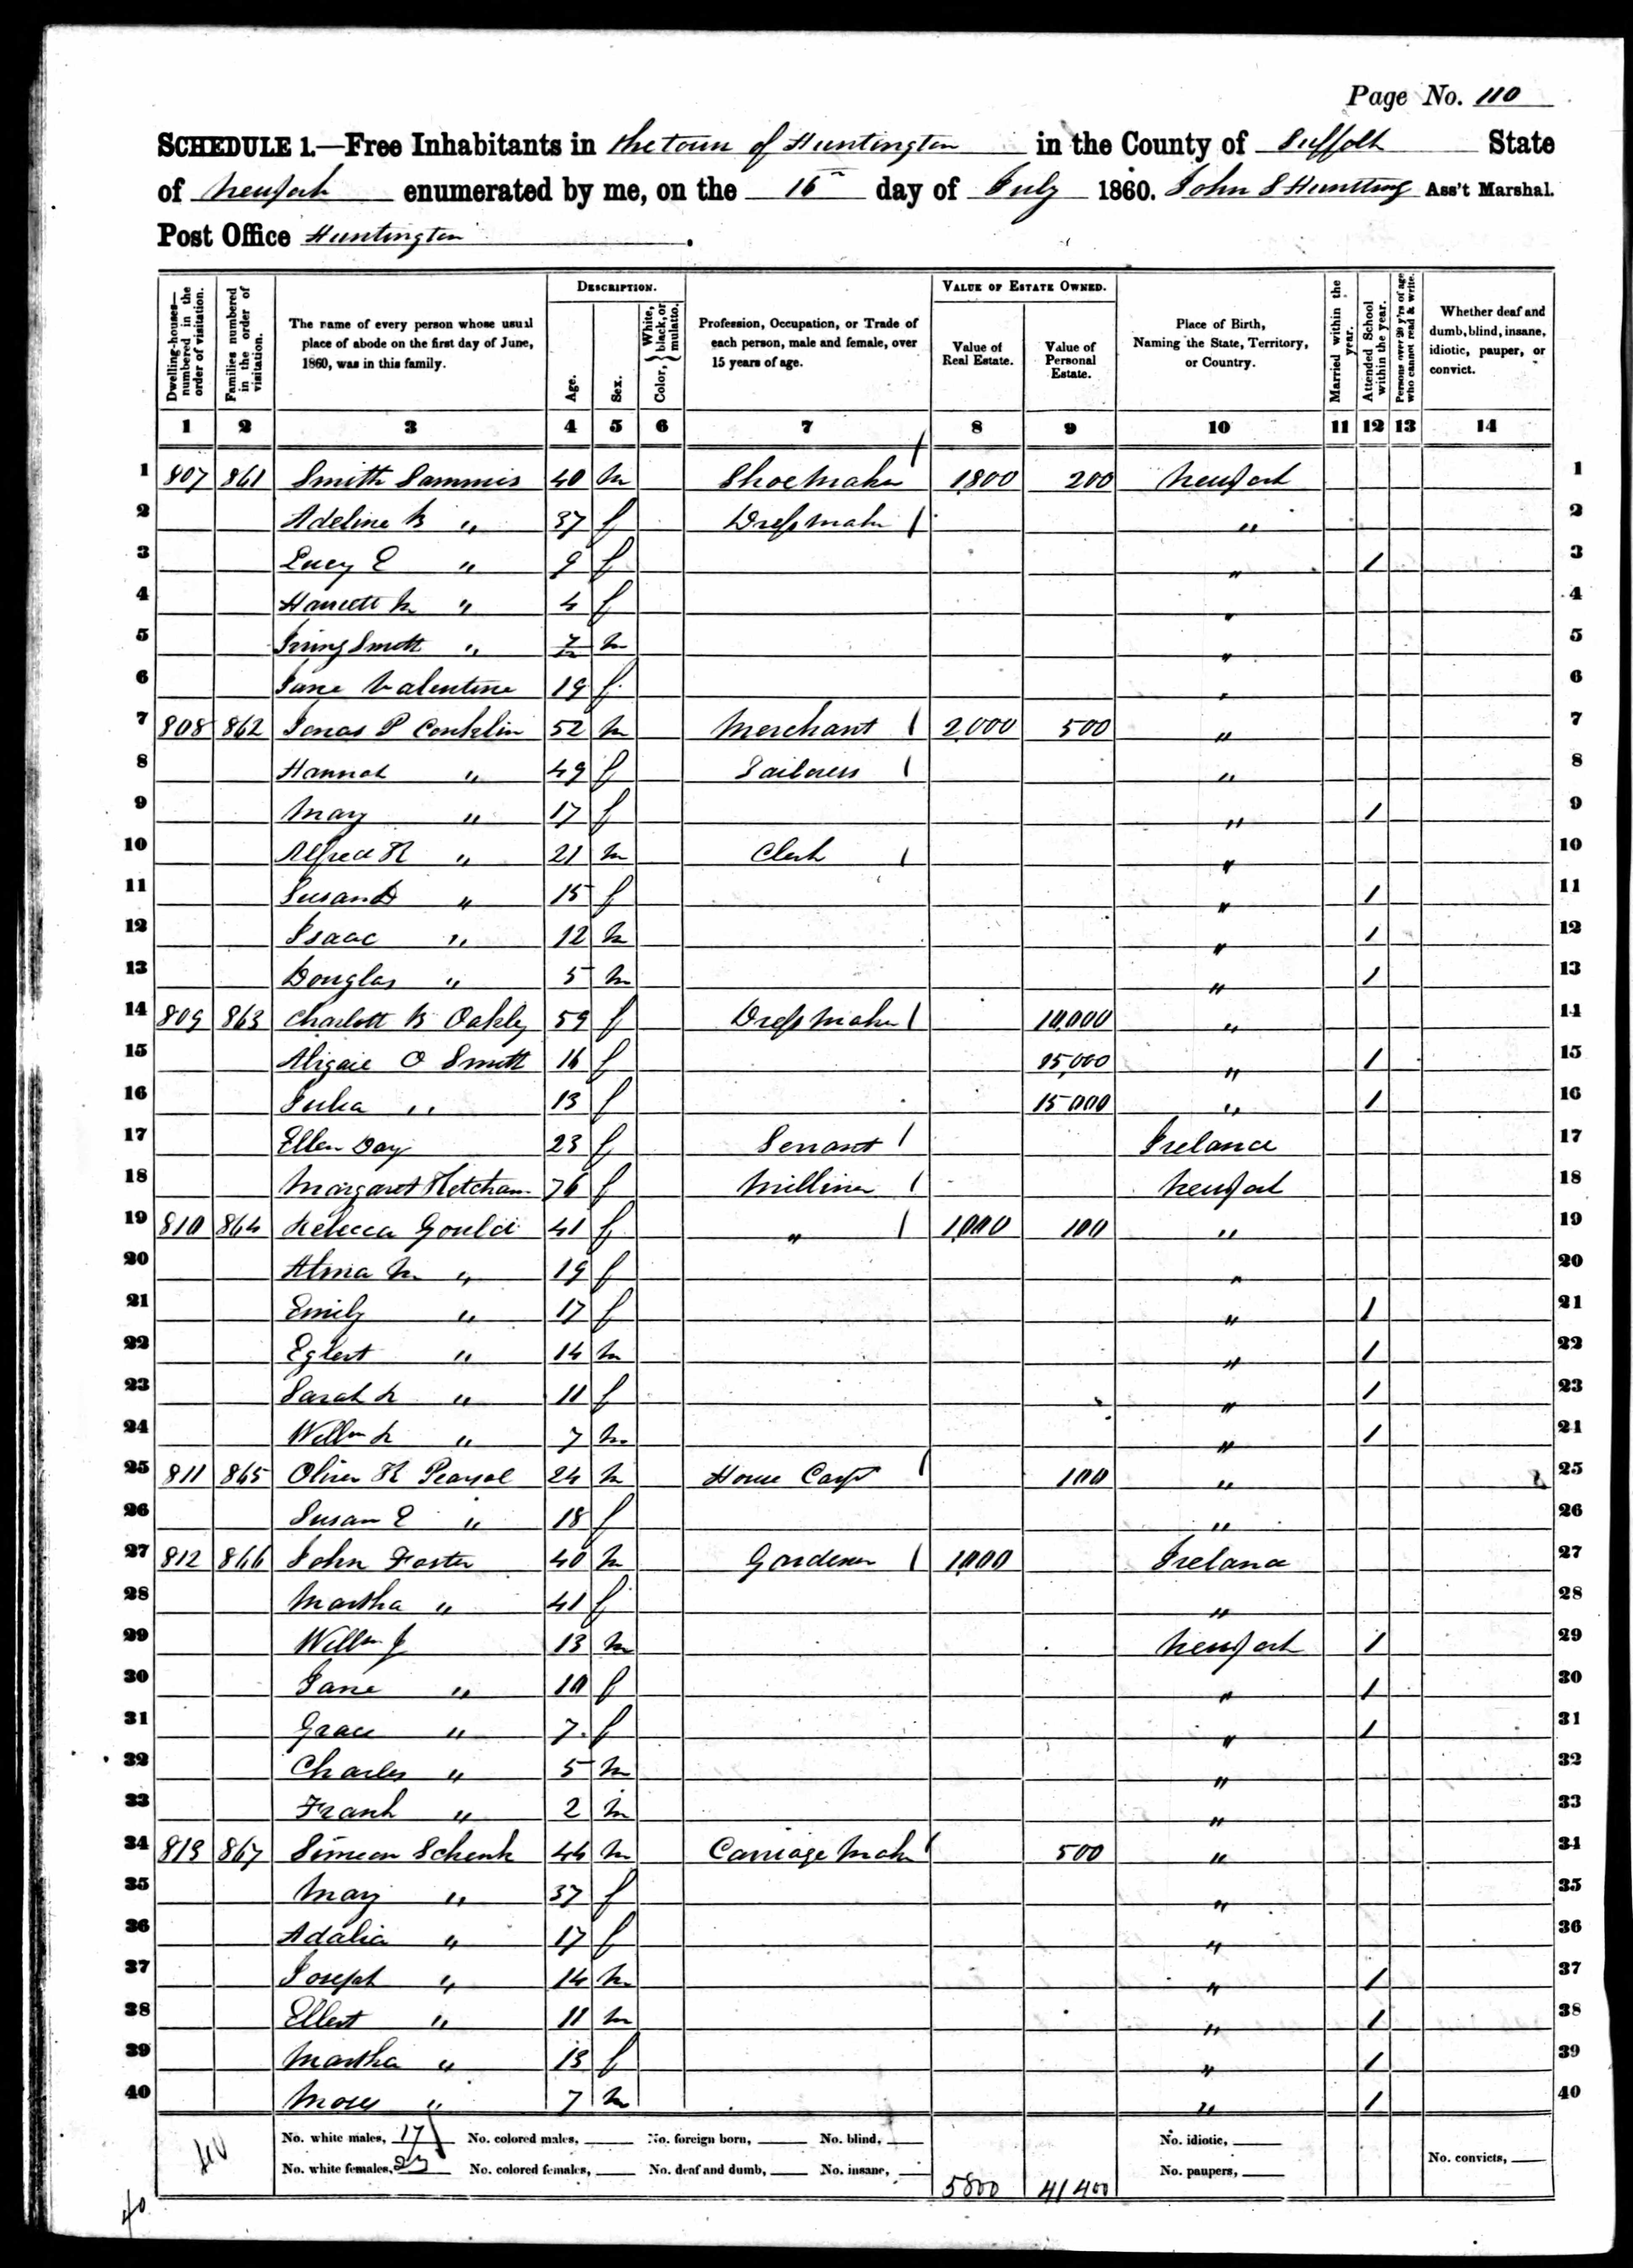 Page No. 110
SCHEDULE 1.—Free Inhabitants in the town of Huntington in the County of Suffolk State
of New York enumerated by me, on the 16 day of July 1860. John S Huntting Ass't Marshal.
Post Office Huntington.
Dwelling-houses—numbered in the order of visitation. Families numbered in the order of visitation. The name of every person whose usual place of abode on the first day of June, 1860, was in this family. DESCRIPTION. Age. Sex. Color, { White, black, or mulatto. Profession, Occupation, or Trade of each person, male and female, over 15 years of age. VALUE OF ESTATE OWNED. Value of Real Estate. Value of Personal Estate. Place of Birth, Naming the State, Territory, or Country. Married within the year. Attended School within the year. Persons over 20 y'rs of age who cannot read & write. Whether deaf and dumb, blind, insane, idiotic, pauper, or convict.
1 2 3 4 5 6 7 8 9 10 11 12 13 14
1 807 861 Smith Sammis 40 m Shoe Maker / 1800 200 New York 1
2 Adeline B " 37 f Dress maker / " 2
3 Lucy E " 9 f " / 3
4 Harriett M " 4 f " 4
5 Irving Smith " 7/12 m " 5
6 Jane Valentine 19 f " 6
7 808 862 Jonas P Conklin 52 m Merchant / 2000 500 " 7
8 Hannah " 49 f Tailoress / " 8
9 Mary " 17 f " / 9
10 Alfred R " 21 m Clerk / " 10
11 Susan " 15 f " / 11
12 Isaac " 12 m " / 12
13 Douglas " 5 m " / 13
14 809 863 Charlott B Oakley 59 f Dress Maker / 10,000 " 14
15 Abigail O Smith 16 f 15,000 " / 15
16 Julia " 13 f 15000 " / 16
17 Ellen Day 23 f Servant / Ireland 17
18 Margaret Ketcham 76 f Milliner / New York 18
19 810 864 Rebecca Gould 41 f " / 1000 100 " 19
20 Alma M " 19 f " 20
21 Emily " 17 f " / 21
22 Egbert " 14 m " / 22
23 Sarah " 11 f " / 23
24 Willm " 7 m " / 24
25 811 865 Oliver K Pearsal 24 m House Carp / 100 " 25
26 Susan E " 18 f " 26
27 812 866 John Foster 40 m Gardener / 1000 Ireland 27
28 Martha " 41 f " 28
29 Willm J 13 m New York / 29
30 Jane " 10 f " / 30
31 Grace " 7 f " / 31
32 Charles " 5 m " 32
33 Frank " 2 m " 33
34 813 867 Simeon Schenk 44 m Carriage Maker / 500 " 34
35 Mary " 37 f " 35
36 Adalia " 17 f " 36
37 Joseph " 14 m " / 37
38 Elbert " 11 m " / 38
39 Martha " 13 f " / 39
40 Moses " 7 m " / 40
40 No. white males, 17 No. colored males, No. foreign born, No. blind, No. idiotic,
No. white females, 23 No. colored females, No. deaf and dumb, No. insane, No. paupers, No. convicts,
5800 41400
40